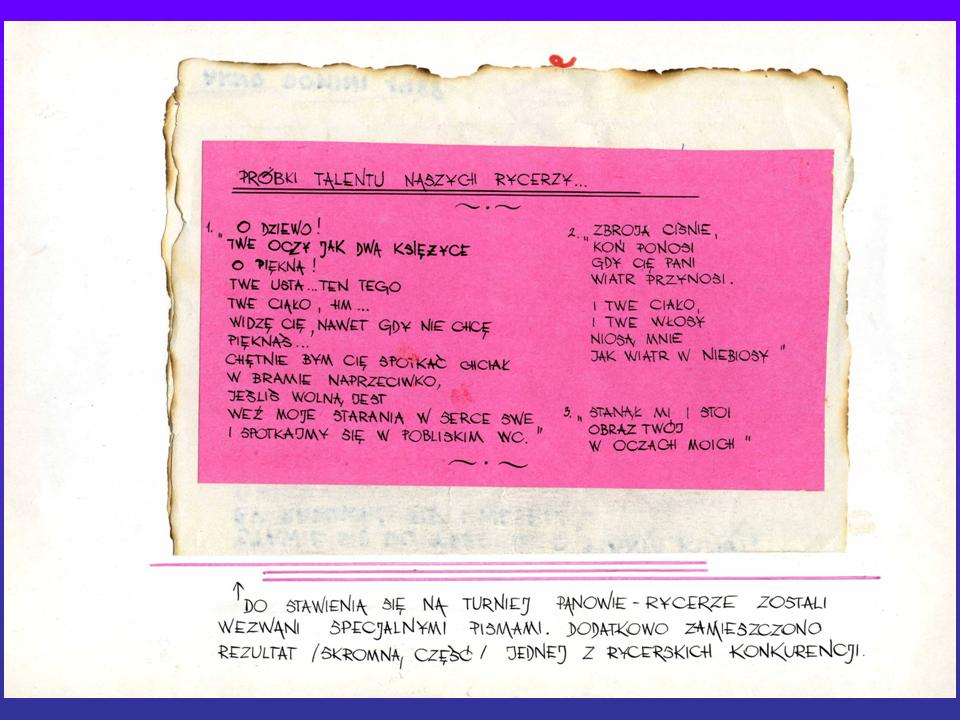 PRÓBKI TALENTU NASZYCH RYCERZY...
~.~
1. „ O DZIEWO!
TWE OCZY JAK DWA KSIĘŻYCE
O PIĘKNA!
TWE USTA...TEN TEGO
TWE CIAŁO, HM...
WIDZĘ CIĘ, NAWET GDY NIE CHCĘ
PIĘKNAŚ...
CHĘTNIE BYM CIĘ SPOTKAĆ CHCIAŁ
W BRAMIE NAPRZECIWKO,
JEŚLIŚ WOLNA JEST
WEŹ MOJE STARANIA W SERCE SWE
I SPOTKAJMY SIĘ W POBLISKIM WC."
2. „ ZBROJA CIŚNIE,
KOŃ PONOSI
GDY CIĘ PANI
WIATR PRZYNOSI.
I TWE CIAŁO,
I TWE WŁOSY
NIOSĄ MNIE
JAK WIATR W NIEBIOSY "
3. „ STANĄŁ MI I STOI
OBRAZ TWÓJ
W OCZACH MOICH "
~.~
↑ DO STAWIENIA SIĘ NA TURNIEJ PANOWIE - RYCERZE ZOSTALI
WEZWANI SPECJALNYMI PISMAMI. DODATKOWO ZAMIESZCZONO
REZULTAT /SKROMNĄ CZĘŚĆ/ JEDNEJ Z RYCERSKICH KONKURENCJI.